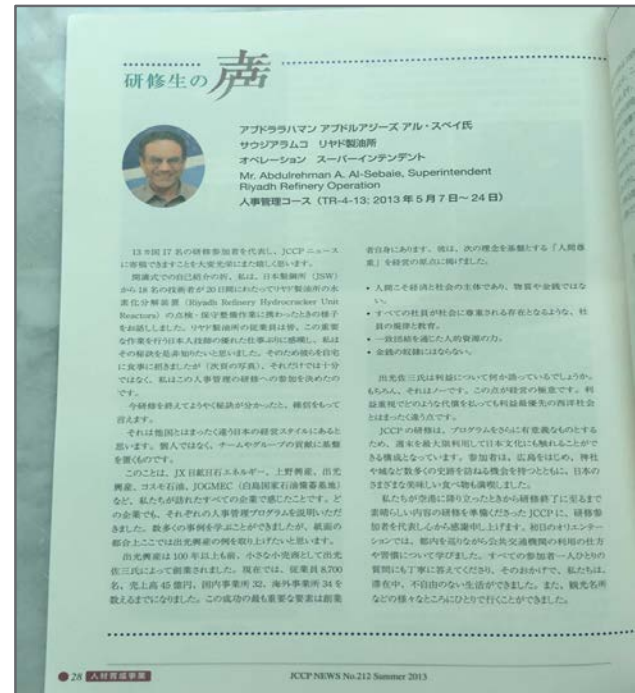 研修生の声
アブドララハマン アブドルアジーズ アル・スベイ氏
サウジアラムコ リヤド製油所
オペレーション スーパーインテンデント
Mr. Abdulrehman A. Al-Sebaie, Superintendent
Riyadh Refinery Operation
人事管理コース（TR-4-13; 2013年5月7日～24日）
13ヵ国17名の研修参加者を代表し、JCCPニュース
に寄稿できますことを大変光栄にまた嬉しく思います。
開講式での自己紹介の折、私は、日本製鋼所（JSW）
から18名の技術者が20日間にわたってリヤド製油所の水
素化分解装置（Riyadh Refinery Hydrocracker Unit
Reactors）の点検・保守整備作業に携わったときの様子
をお話ししました。リヤド製油所の従業員は皆、この重要
な作業を行う日本人技師の優れた仕事ぶりに感嘆し、私は
その秘訣を是非知りたいと思いました。そのため彼らを自宅
に食事に招きましたが（次頁の写真）、それだけでは十分
ではなく、私はこの人事管理の研修への参加を決めたの
です。
今研修を終えてようやく秘訣が分かったと、確信をもって
言えます。
それは他国とはまったく違う日本の経営スタイルにあると
思います。個人ではなく、チームやグループの貢献に基盤
を置くものです。
このことは、JX日鉱日石エネルギー、上野興産、出光
興産、コスモ石油、JOGMEC（白島国家石油備蓄基地）
など、私たちが訪れたすべての企業で感じたことです。ど
の企業でも、それぞれの人事管理プログラムを説明いただ
きました。数多くの事例を学ぶことができましたが、紙面の
都合上ここでは出光興産の例を取り上げたいと思います。
出光興産は100年以上も前、小さな小売商として出光
佐三氏によって創業されました。現在では、従業員8,700
名、売上高45億円、国内事業所32、海外事業所34を
数えるまでになりました。この成功の最も重要な要素は創業
者自身にあります。彼は、次の理念を基盤とする「人間尊
重」を経営の原点に掲げました。
• 人間こそ経済と社会の主体であり、物質や金銭ではな
い。
• すべての社員が社会に尊重される存在となるような、社
員の規律と教育。
• 一致団結を通じた人的資源の力。
• 金銭の奴隷にはならない。
出光佐三氏は利益について何か語っているでしょうか。
もちろん、それはノーです。この点が経営の極意です。利
益重視でどのような代償を払っても利益最優先の西洋社会
とはまったく違う点です。
JCCPの研修は、プログラムをさらに有意義なものとする
ため、週末を最大限利用して日本文化にも触れることがで
きる構成となっています。参加者は、広島をはじめ、神社
や城など数多くの史跡を訪ねる機会を持つとともに、日本の
さまざまな美味しい食べ物も満喫しました。
私たちが空港に降り立ったときから研修終了に至るまで
素晴らしい内容の研修を準備くださったJCCPに、研修参
加者を代表し心から感謝申し上げます。初日のオリエンテー
ションでは、都内を巡りながら公共交通機関の利用の仕方
や習慣について学びました。すべての参加者一人ひとりの
質問にも丁寧に答えてくださり、そのおかげで、私たちは、
滞在中、不自由のない生活ができました。また、観光名所
などの様々なところにひとりで行くことができました。
28 人材育成事業
JCCP NEWS No.212 Summer 2013